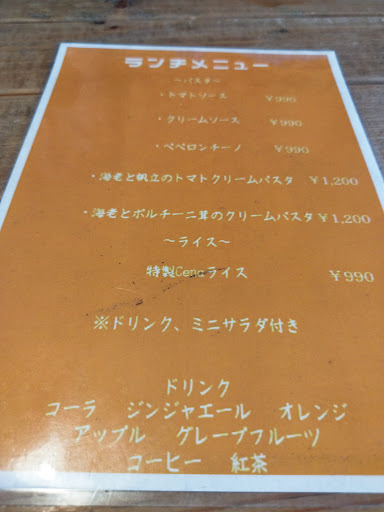 ランチメニュー
～パスタ～
・トマトソース ￥990
・クリームソース ￥990
・ペペロンチーノ ￥990
・海老と帆立のトマトクリームパスタ ￥1,200
・海老とポルチーニ茸のクリームパスタ ￥1,200
～ライス～
特製Cenaライス ￥990
※ドリンク、ミニサラダ付き
ドリンク
コーラ ジンジャエール オレンジ
アップル グレープフルーツ
コーヒー 紅茶